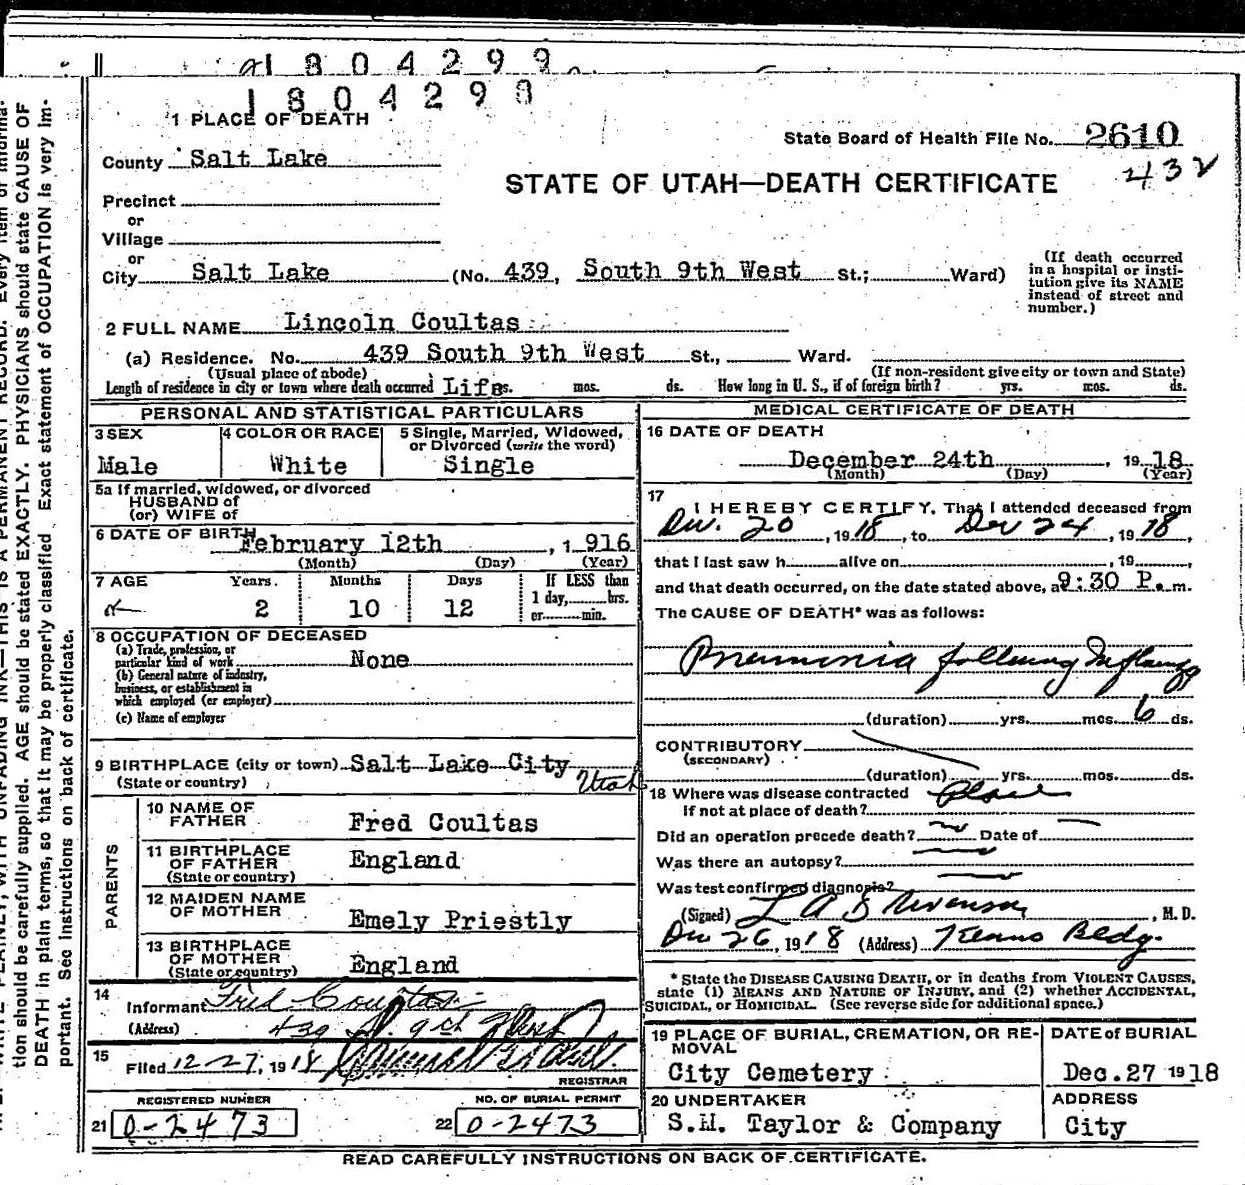 1804299
1804298
1 PLACE OF DEATH
State Board of Health File No. 2610
432
County Salt Lake
STATE OF UTAH—DEATH CERTIFICATE
Precinct
or
Village
or
City Salt Lake (No. 439, South 9th West St.; Ward)
(If death occurred
in a hospital or insti-
tution give its NAME
instead of street and
number.)
2 FULL NAME Lincoln Coultas
(a) Residence. No. 439 South 9th West St., Ward.
(Usual place of abode) (If non-resident give city or town and State)
Length of residence in city or town where death occurred Life mos. ds. How long in U. S., if of foreign birth? yrs. mos. ds.
PERSONAL AND STATISTICAL PARTICULARS
3 SEX 4 COLOR OR RACE 5 Single, Married, Widowed,
or Divorced (write the word)
Male White Single
5a If married, widowed, or divorced
HUSBAND of
(or) WIFE of
6 DATE OF BIRTH February 12th, 1916
(Month) (Day) (Year)
7 AGE Years. Months Days If LESS than
1 day, hrs.
or min.
2 10 12
8 OCCUPATION OF DECEASED
(a) Trade, profession, or
particular kind of work None
(b) General nature of industry,
business, or establishment in
which employed (or employer)
(c) Name of employer
9 BIRTHPLACE (city or town) Salt Lake City
(State or country) Utah
PARENTS
10 NAME OF
FATHER Fred Coultas
11 BIRTHPLACE
OF FATHER England
(State or country)
12 MAIDEN NAME
OF MOTHER Emely Priestly
13 BIRTHPLACE
OF MOTHER England
(State or country)
14
Informant Fred Coultas
(Address) 439 So. 9th West
15
Filed 12-27, 1918
REGISTRAR
REGISTERED NUMBER NO. OF BURIAL PERMIT
21 0-2473 22 0-2473
MEDICAL CERTIFICATE OF DEATH
16 DATE OF DEATH
December 24th, 1918
(Month) (Day) (Year)
17
I HEREBY CERTIFY, That I attended deceased from
Dec. 20, 1918, to Dec 24, 1918,
that I last saw h alive on , 19 ,
and that death occurred, on the date stated above, at 9:30 P. m.
The CAUSE OF DEATH* was as follows:
Pneumonia following Influenza
(duration) yrs. mos. 6 ds.
CONTRIBUTORY
(SECONDARY)
(duration) yrs. mos. ds.
18 Where was disease contracted
If not at place of death?
Did an operation precede death? no Date of
Was there an autopsy?
Was test confirmed diagnosis?
(Signed) L A Stevenson, M. D.
Dec 26, 1918 (Address) Kearns Bldg.
* State the DISEASE CAUSING DEATH, or in deaths from VIOLENT CAUSES,
state (1) MEANS AND NATURE OF INJURY, and (2) whether ACCIDENTAL,
SUICIDAL, or HOMICIDAL. (See reverse side for additional space.)
19 PLACE OF BURIAL, CREMATION, OR RE-
MOVAL
City Cemetery
DATE of BURIAL
Dec. 27 1918
20 UNDERTAKER
S.M. Taylor & Company
ADDRESS
City
READ CAREFULLY INSTRUCTIONS ON BACK OF CERTIFICATE.
tion should be carefully supplied. AGE should be stated EXACTLY. PHYSICIANS should state CAUSE OF
DEATH in plain terms, so that it may be properly classified. Exact statement of OCCUPATION is very im-
portant. See Instructions on back of certificate.